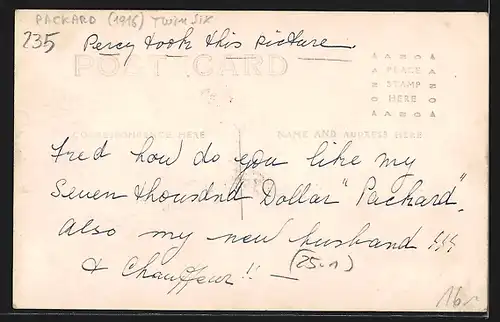 PACKARD (1916) TWIN SIX
235
Percy took this picture.
POST CARD
AZO
PLACE
STAMP
HERE
CORRESPONDENCE HERE
NAME AND ADDRESS HERE
Fred how do you like my
Seven thousdnd Dollar "Packard".
also my new husband !!!
& Chauffeur !! (25.1)
16